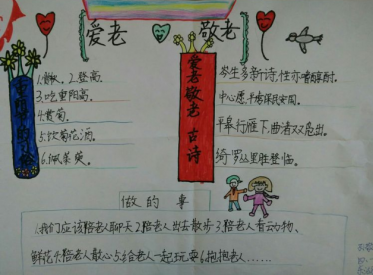 爱老 敬老
重阳节的习俗
1.插茱、2.登高。
3.吃重阳高。
4.赏菊。
5.饮菊花酒。
6.佩茱萸。
爱老敬老古诗
岁生多新诗,性亦嗜醇酎。
中心愿平
平皋行雁下,曲渚双凫出。
绮罗丛里胜登临。
做的事
1.我们应该陪老人聊天2.陪老人出去散步3.陪老人看动物、
鲜花4.陪老人散心5.给老人一起玩耍6.抱抱老人……